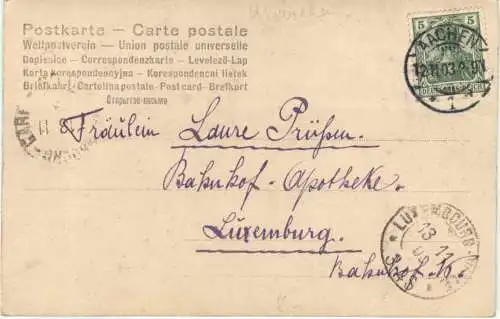 Postkarte – Carte postale
Weltpostverein – Union postale universelle
Dopisnice – Correspondenzkarte – Levelező-Lap
Karta korespondencyjna – Korespondencni listek
Briefkart – Cartolina postale – Post card – Brefkort
Открытое письмо
5 5
AACHEN
12.11.03.
1
Fräulein Laure Prüßen
Bahnhof-Apotheke
Luxemburg.
Bahnhof
LUXEMBOURG
13
11